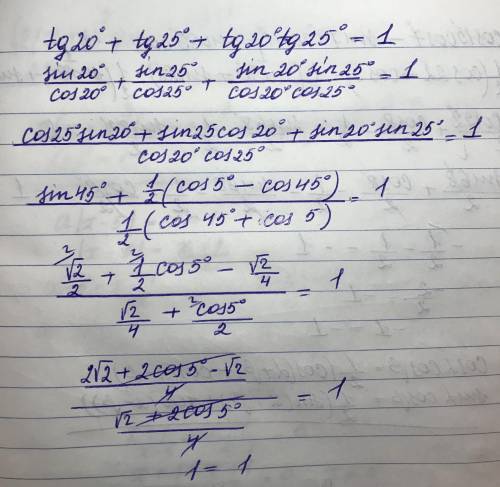 tg20° + tg25° + tg20°tg25° = 1
sin20°/cos20° + sin25°/cos25° + sin20°sin25°/cos20°cos25° = 1
cos25°sin20° + sin25cos20° + sin20°sin25°/cos20°cos25° = 1
sin45° + 1/2(cos5° − cos45°)/1/2(cos45° + cos5) = 1
²√2/2 + ²1/2cos5° − √2/4/√2/4 + ²cos5°/2 = 1
2√2 + 2cos5° − √2/4/√2 + 2cos5°/4 = 1
1 = 1